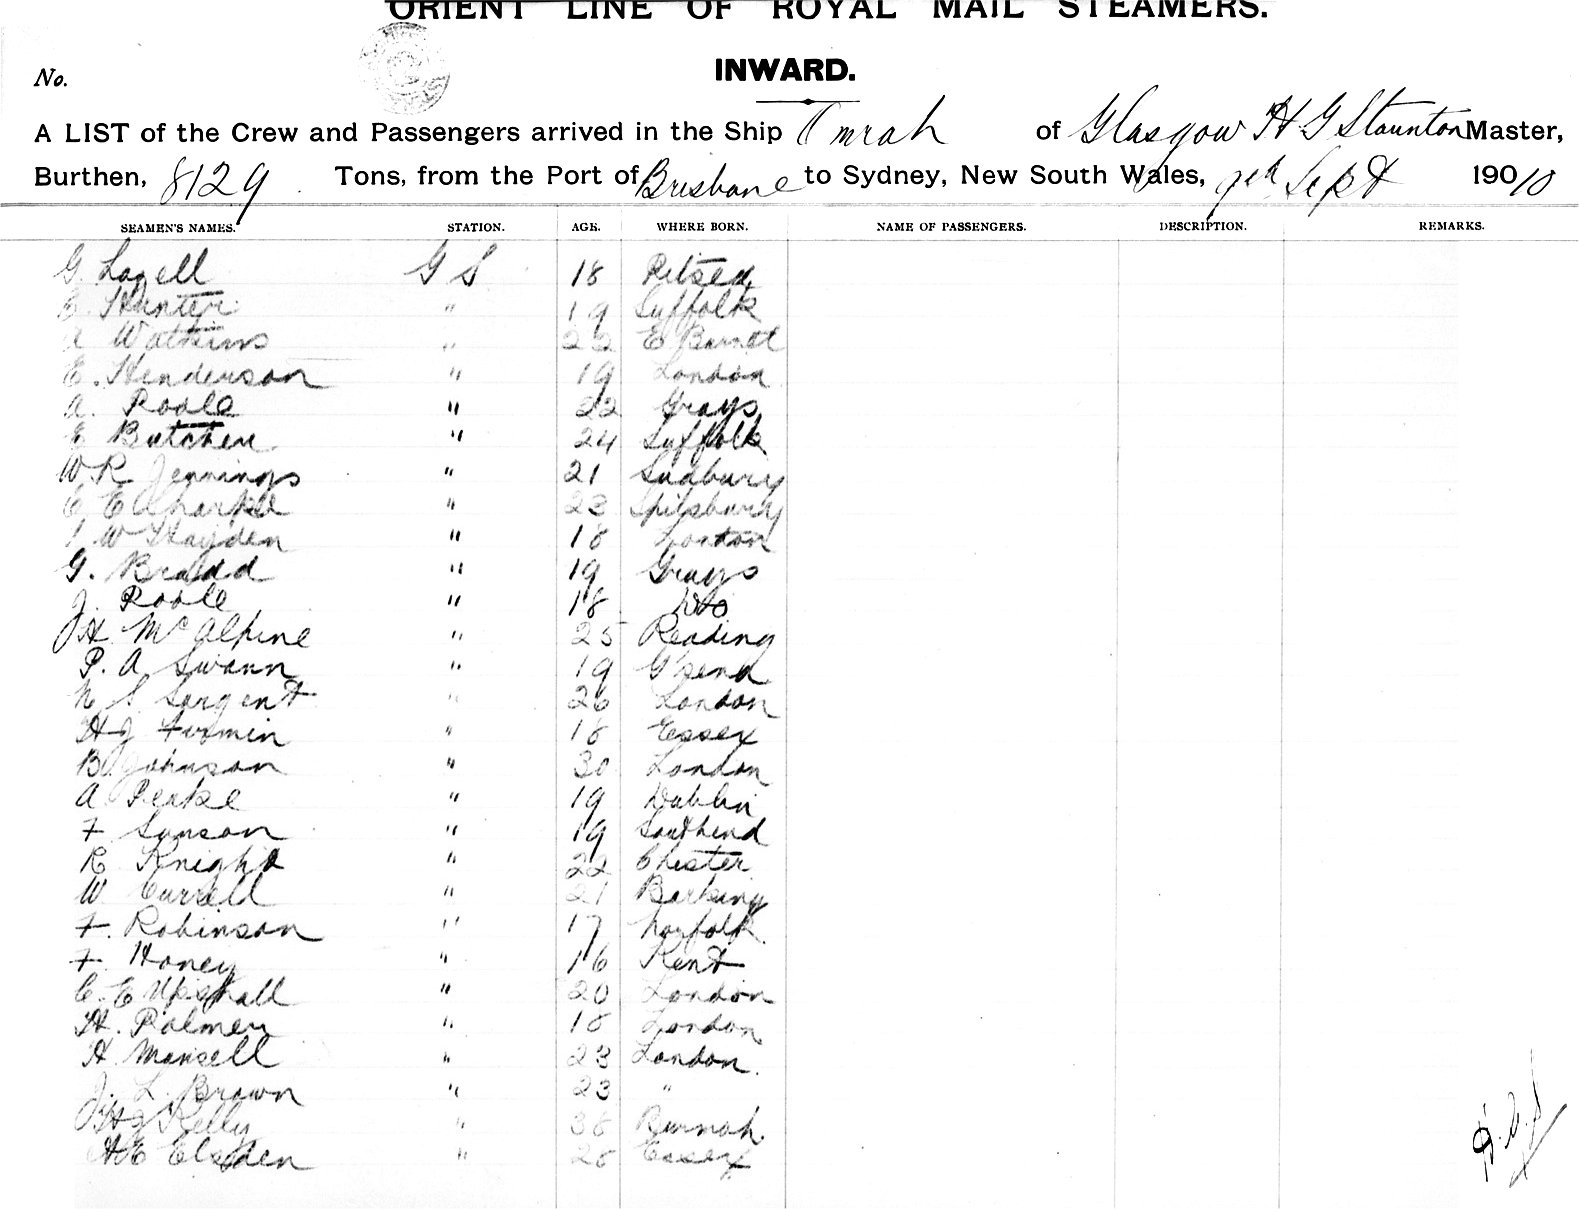 ORIENT LINE OF ROYAL MAIL STEAMERS.
INWARD.
No.
A LIST of the Crew and Passengers arrived in the Ship Omrah of Glasgow H G Staunton Master,
Burthen, 8129 Tons, from the Port of Brisbane to Sydney, New South Wales, Sept 19010
SEAMEN'S NAMES. STATION. AGE. WHERE BORN. NAME OF PASSENGERS. DESCRIPTION. REMARKS.
G. Lazell G S 18 Pitsea
Hunter " 19 Suffolk
A Watkins " 22 E Barnet
E. Henderson " 19 London
A. Poole " 22 Grays
E Butcher " 24 Suffolk
W R Jennings " 21 Sudbury
E E " 23 Spilsbury
W Hayden " 18 London
G. Bradd " 19 Grays
J. Poole " 18 Do
J H McAlpine " 25 Reading
P. A Swann " 19 G'send
N S Sargent " 26 London
H J Firmin " 18 Essex
B Johnson " 30 London
A Peake " 19 Dublin
F Sanson " 19 Southend
R Knight " 22 Chester
W Currell " 21 Barking
F. Robinson " 17 Norfolk
F. Honey " 16 Kent
C. E Upshall " 20 London
H. Palmer " 18 London
H Mansell " 23 London.
J. L Brown " 23 "
Kelly " 38 Burmah.
H E Elsden " 28 Essex